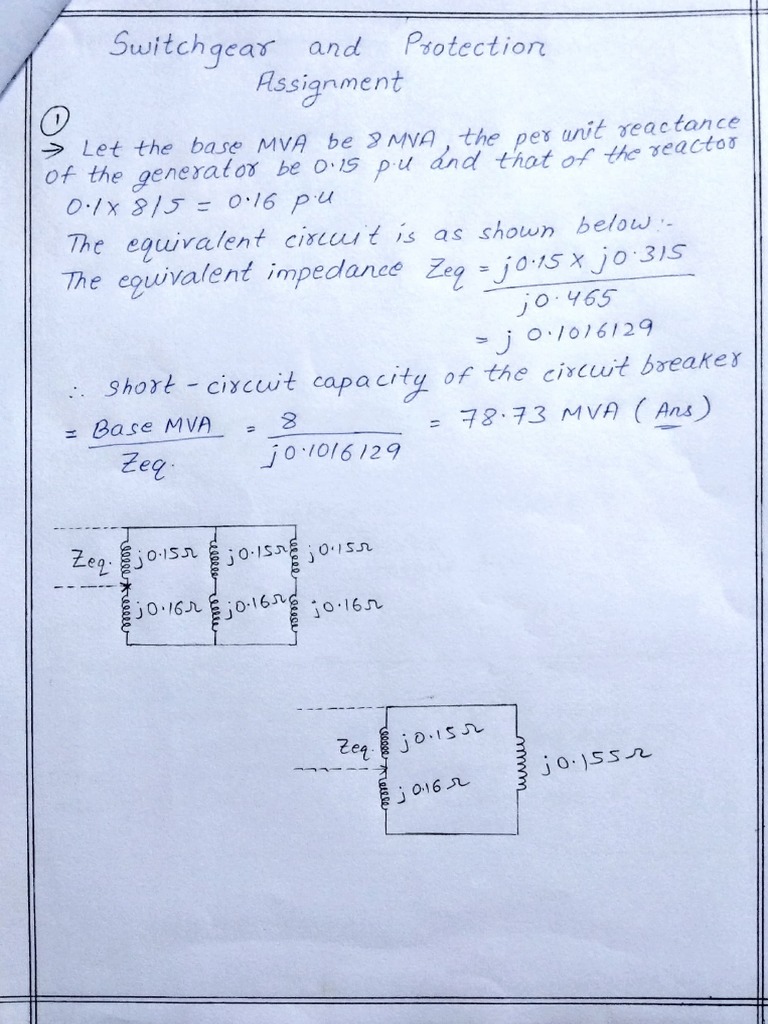 Switchgear and Protection
Assignment
①
→ Let the base MVA be 8 MVA, the per unit reactance
of the generator be 0.15 p.u and that of the reactor
0.1 x 8/5 = 0.16 p.u
The equivalent circuit is as shown below:-
The equivalent impedance Zeq = j0.15 x j0.315
j0.465
= j 0.1016129
∴ short-circuit capacity of the circuit breaker
= Base MVA = 8 = 78.73 MVA (Ans)
Zeq. j0.1016129
Zeq. j0.15Ω j0.15Ω j0.15Ω
j0.16Ω j0.16Ω j0.16Ω
Zeq. j0.15Ω
j0.155Ω
j0.16Ω